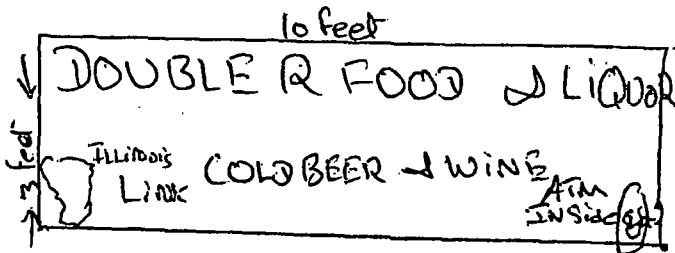 10 feet
DOUBLE R FOOD & LIQUOR
3 feet
ILLINOIS
LINK
COLD BEER & WINE
ATM
INSide